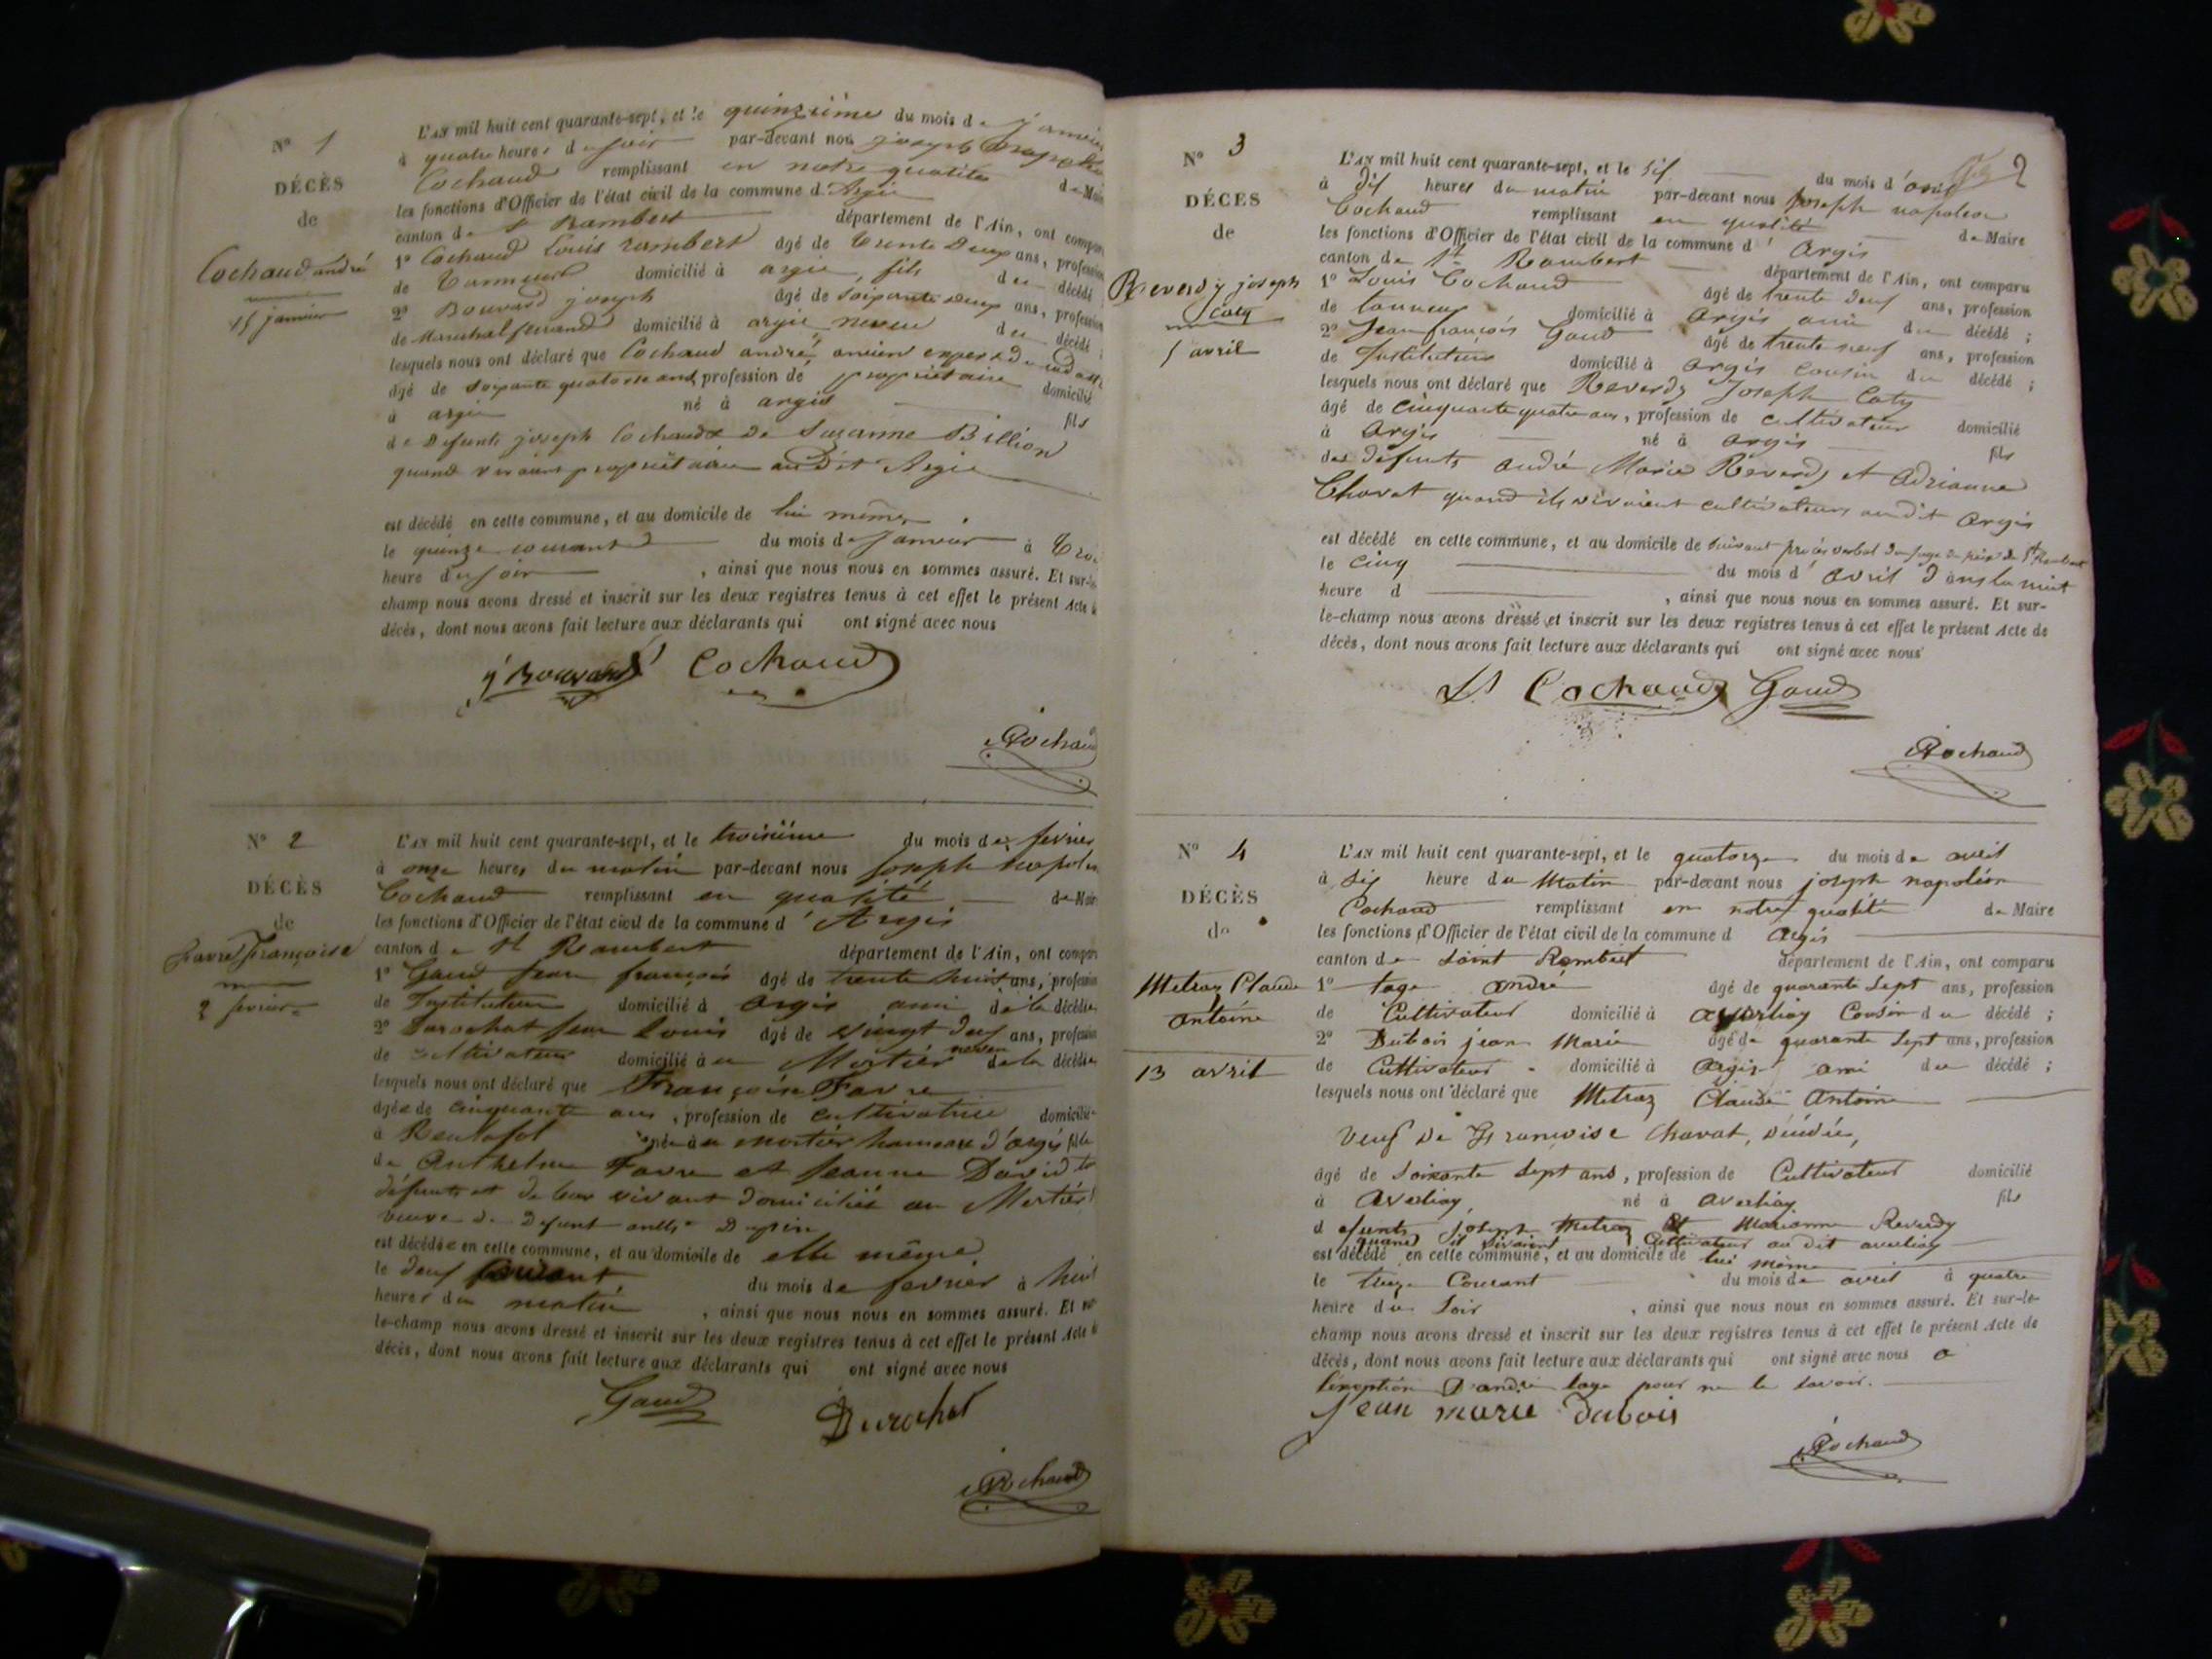 N° 1
DÉCÈS
de
Cochaud andré
15 janvier
L'AN mil huit cent quarante-sept, et le quinzième du mois de janvier
à quatre heures du soir par-devant nous joseph napoléon
Cochaud remplissant en notre qualité de Maire
les fonctions d'Officier de l'état civil de la commune d'Argis
canton de St Rambert département de l'Ain, ont comparu
1° Cochaud Louis rambert âgé de trente Deux ans, profession
de Tanneur domicilié à argis, fils du décédé
2° Bouvard joseph âgé de soixante deux ans, profession
de Marechal ferrand domicilié à argis neveu du décédé ;
lesquels nous ont déclaré que Cochaud andré, ancien expert du cadastre
âgé de soixante quatorze ans, profession de propriétaire domicilié
à argis né à argis fils
de Defunts joseph Cochaud & de Suzanne Billion
quand vivaient propriétaires au Dit Argis
est décédé en cette commune, et au domicile de lui même
le quinze courant du mois de janvier à trois
heure du soir , ainsi que nous nous en sommes assuré. Et sur-le-
champ nous avons dressé et inscrit sur les deux registres tenus à cet effet le présent Acte de
décès, dont nous avons fait lecture aux déclarants qui ont signé avec nous
j Bouvard Cochaud
Cochaud
N° 2
DÉCÈS
de
Favre Françoise
2 fevrier
L'AN mil huit cent quarante-sept, et le troisième du mois de fevrier
à onze heures du matin par-devant nous Joseph napoléon
Cochaud remplissant en qualité de Maire
les fonctions d'Officier de l'état civil de la commune d'Argis
canton de St Rambert département de l'Ain, ont comparu
1° Gaud Jean françois âgé de trente huit ans, profession
de Instituteur domicilié à Argis ami de la décédée
2° Durochat Jean Louis âgé de vingt deux ans, profession
de cultivateur domicilié à au Mortier neveu de la décédée
lesquels nous ont déclaré que Françoise Favre
âgée de cinquante ans, profession de cultivatrice domiciliée
à née à au mortier hameau d'argis fille
de Anthelme Favre et Jeanne David
défunts et de leur vivant domiciliés au Mortier
veuve de Defunt
est décédée en cette commune, et au domicile de elle même
le deux Courant du mois de fevrier à huit
heures du matin , ainsi que nous nous en sommes assuré. Et sur-
le-champ nous avons dressé et inscrit sur les deux registres tenus à cet effet le présent Acte de
décès, dont nous avons fait lecture aux déclarants qui ont signé avec nous
Gaud Durochat
Cochaud
2
N° 3
DÉCÈS
de
Reverdy joseph
Caty
5 avril
L'AN mil huit cent quarante-sept, et le six du mois d'avril
à dix heures du matin par-devant nous Joseph napoléon
Cochaud remplissant en qualité de Maire
les fonctions d'Officier de l'état civil de la commune d'Argis
canton de St Rambert département de l'Ain, ont comparu
1° Louis Cochaud âgé de trente deux ans, profession
de tanneur domicilié à Argis ami du décédé ;
2° Jean françois Gaud âgé de trente neuf ans, profession
de Instituteur domicilié à Argis cousin du décédé ;
lesquels nous ont déclaré que Reverdy Joseph Caty
âgé de cinquante quatre ans, profession de cultivateur domicilié
à Argis né à Argis fils
des défunts André Marie Reverdy et Adrianne
Chavat quand ils vivaient cultivateurs au dit Argis
est décédé en cette commune, et au domicile de suivant procès verbal du juge de paix de St Rambert
le cinq du mois d'avril dans la nuit
heure d , ainsi que nous nous en sommes assuré. Et sur-
le-champ nous avons dressé et inscrit sur les deux registres tenus à cet effet le présent Acte de
décès, dont nous avons fait lecture aux déclarants qui ont signé avec nous
Ls Cochaud Gaud
Cochaud
N° 4
DÉCÈS
de
Metraz Claude
Antoine
13 avril
L'AN mil huit cent quarante-sept, et le quatorze du mois de avril
à six heure du Matin par-devant nous joseph napoléon
Cochaud remplissant en notre qualité de Maire
les fonctions d'Officier de l'état civil de la commune d Argis
canton de Saint Rambert département de l'Ain, ont comparu
1° tage André âgé de quarante Sept ans, profession
de Cultivateur domicilié à averliay Cousin du décédé ;
2° Dubois jean Marie âgé de quarante Sept ans, profession
de Cultivateur domicilié à Argis ami du décédé ;
lesquels nous ont déclaré que Metraz Claude Antoine
Veuf de Françoise Chavat, décédée,
âgé de soixante Sept ans, profession de Cultivateur domicilié
à Averliay né à averliay fils
d efunts Joseph Metraz Et Marianne Reverdy
quand ils vivaient Cultivateur au dit averliay
est décédé en cette commune, et au domicile de lui même
le treize Courant du mois de avril à quatre
heure du Soir , ainsi que nous nous en sommes assuré. Et sur-le-
champ nous avons dressé et inscrit sur les deux registres tenus à cet effet le présent Acte de
décès, dont nous avons fait lecture aux déclarants qui ont signé avec nous a
l'exeption D'andré tage pour ne le savoir.
Jean marie dubois
Cochaud